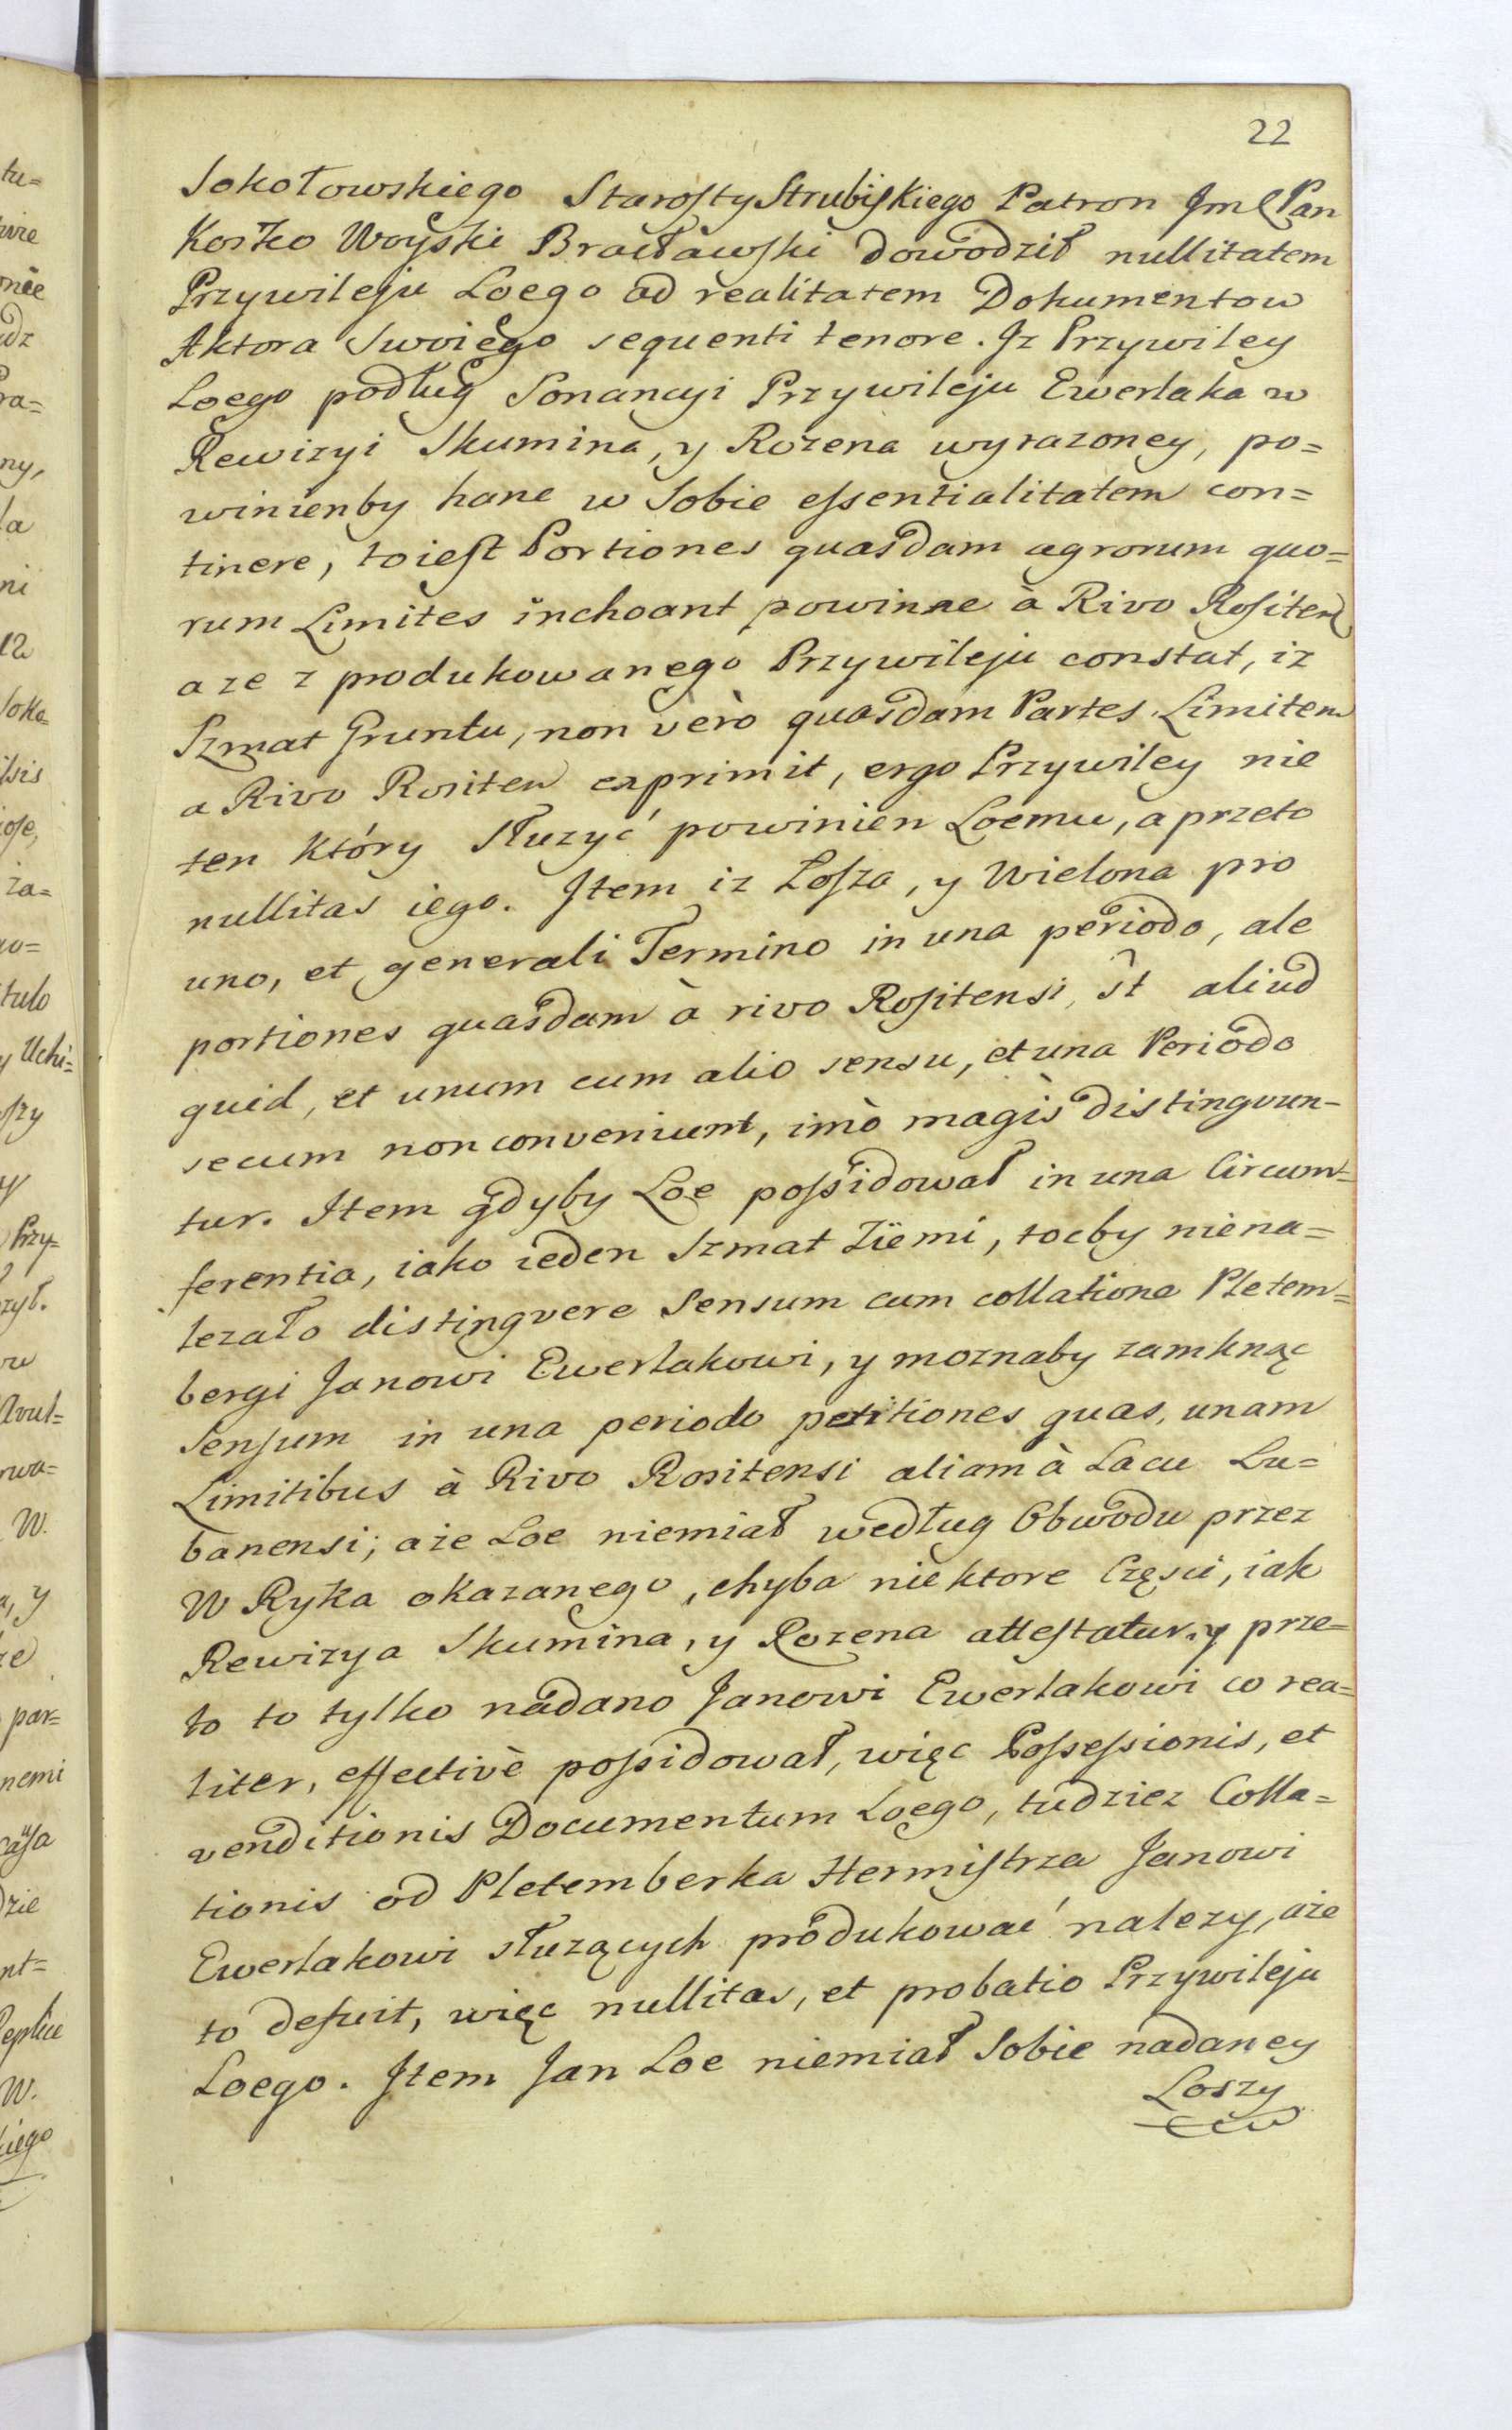 22
Sokołowskiego Starosty Strubiskiego Patron Jmć Pan
Kosko Woyski Bracławski dowodził nullitatem
Przywileju Loego ad realitatem Dokumentow
Aktora Swoiego sequenti tenore. Jz Przywiley
Loego podług Sonancyi Przywileju Ewerlaka w
Rewizyi Skumina, y Rozena wyrazoney, po=
winienby hanc w Sobie essentialitatem con=
tinere, toiest Portiones quasdam agrorum quo=
rum Limites inchoant powinne à Rivo Rositen
aze z produkowanego Przywileju constat, iz
Szmat Gruntu, non verò quasdam Partes Limitem
a Rivo Rositen exprimit, ergo Przywiley nie
ten który Służyć powinien Loemu, a przeto
nullitas iego. Jtem iz Łosza, y Wielona pro
uno, et generali Termino in una periodo, ale
portiones quasdam à rivo Rositensi, st aliud
quid, et unum cum alio sensu, et una Periodo
secum non conveniunt, imò magis distingvun-
tur. Item gdyby Loe possidował in una Circum=
ferentia, iako ieden Szmat Ziemi, tocby niena=
lezało distingvere Sensum cum collatione Pletem=
bergi Janowi Ewerlakowi, y moznaby zamknąc
Sensum in una periodo petitiones quas, unam
Limitibus à Rivo Rositensi aliam à Lacu Lu=
banensi; aże Loe niemiał według Obwodu przez
W Ryka okazanego, chyba niektore Częsci, iak
Rewizya Skumina, y Rozena attestatur, y prze=
to to tylko nadano Janowi Ewerlakowi co rea=
liter, effectivè possidował, więc Possessionis, et
venditionis Documentum Loego, tudziez Colla=
tionis od Pletemberka Hermistrza Janowi
Ewerlakowi służących produkować nalezy, aże
to defuit, więc nullitas, et probatio Przywileju
Loego. Jtem Jan Loe niemiał Sobie nadaney
Loszy